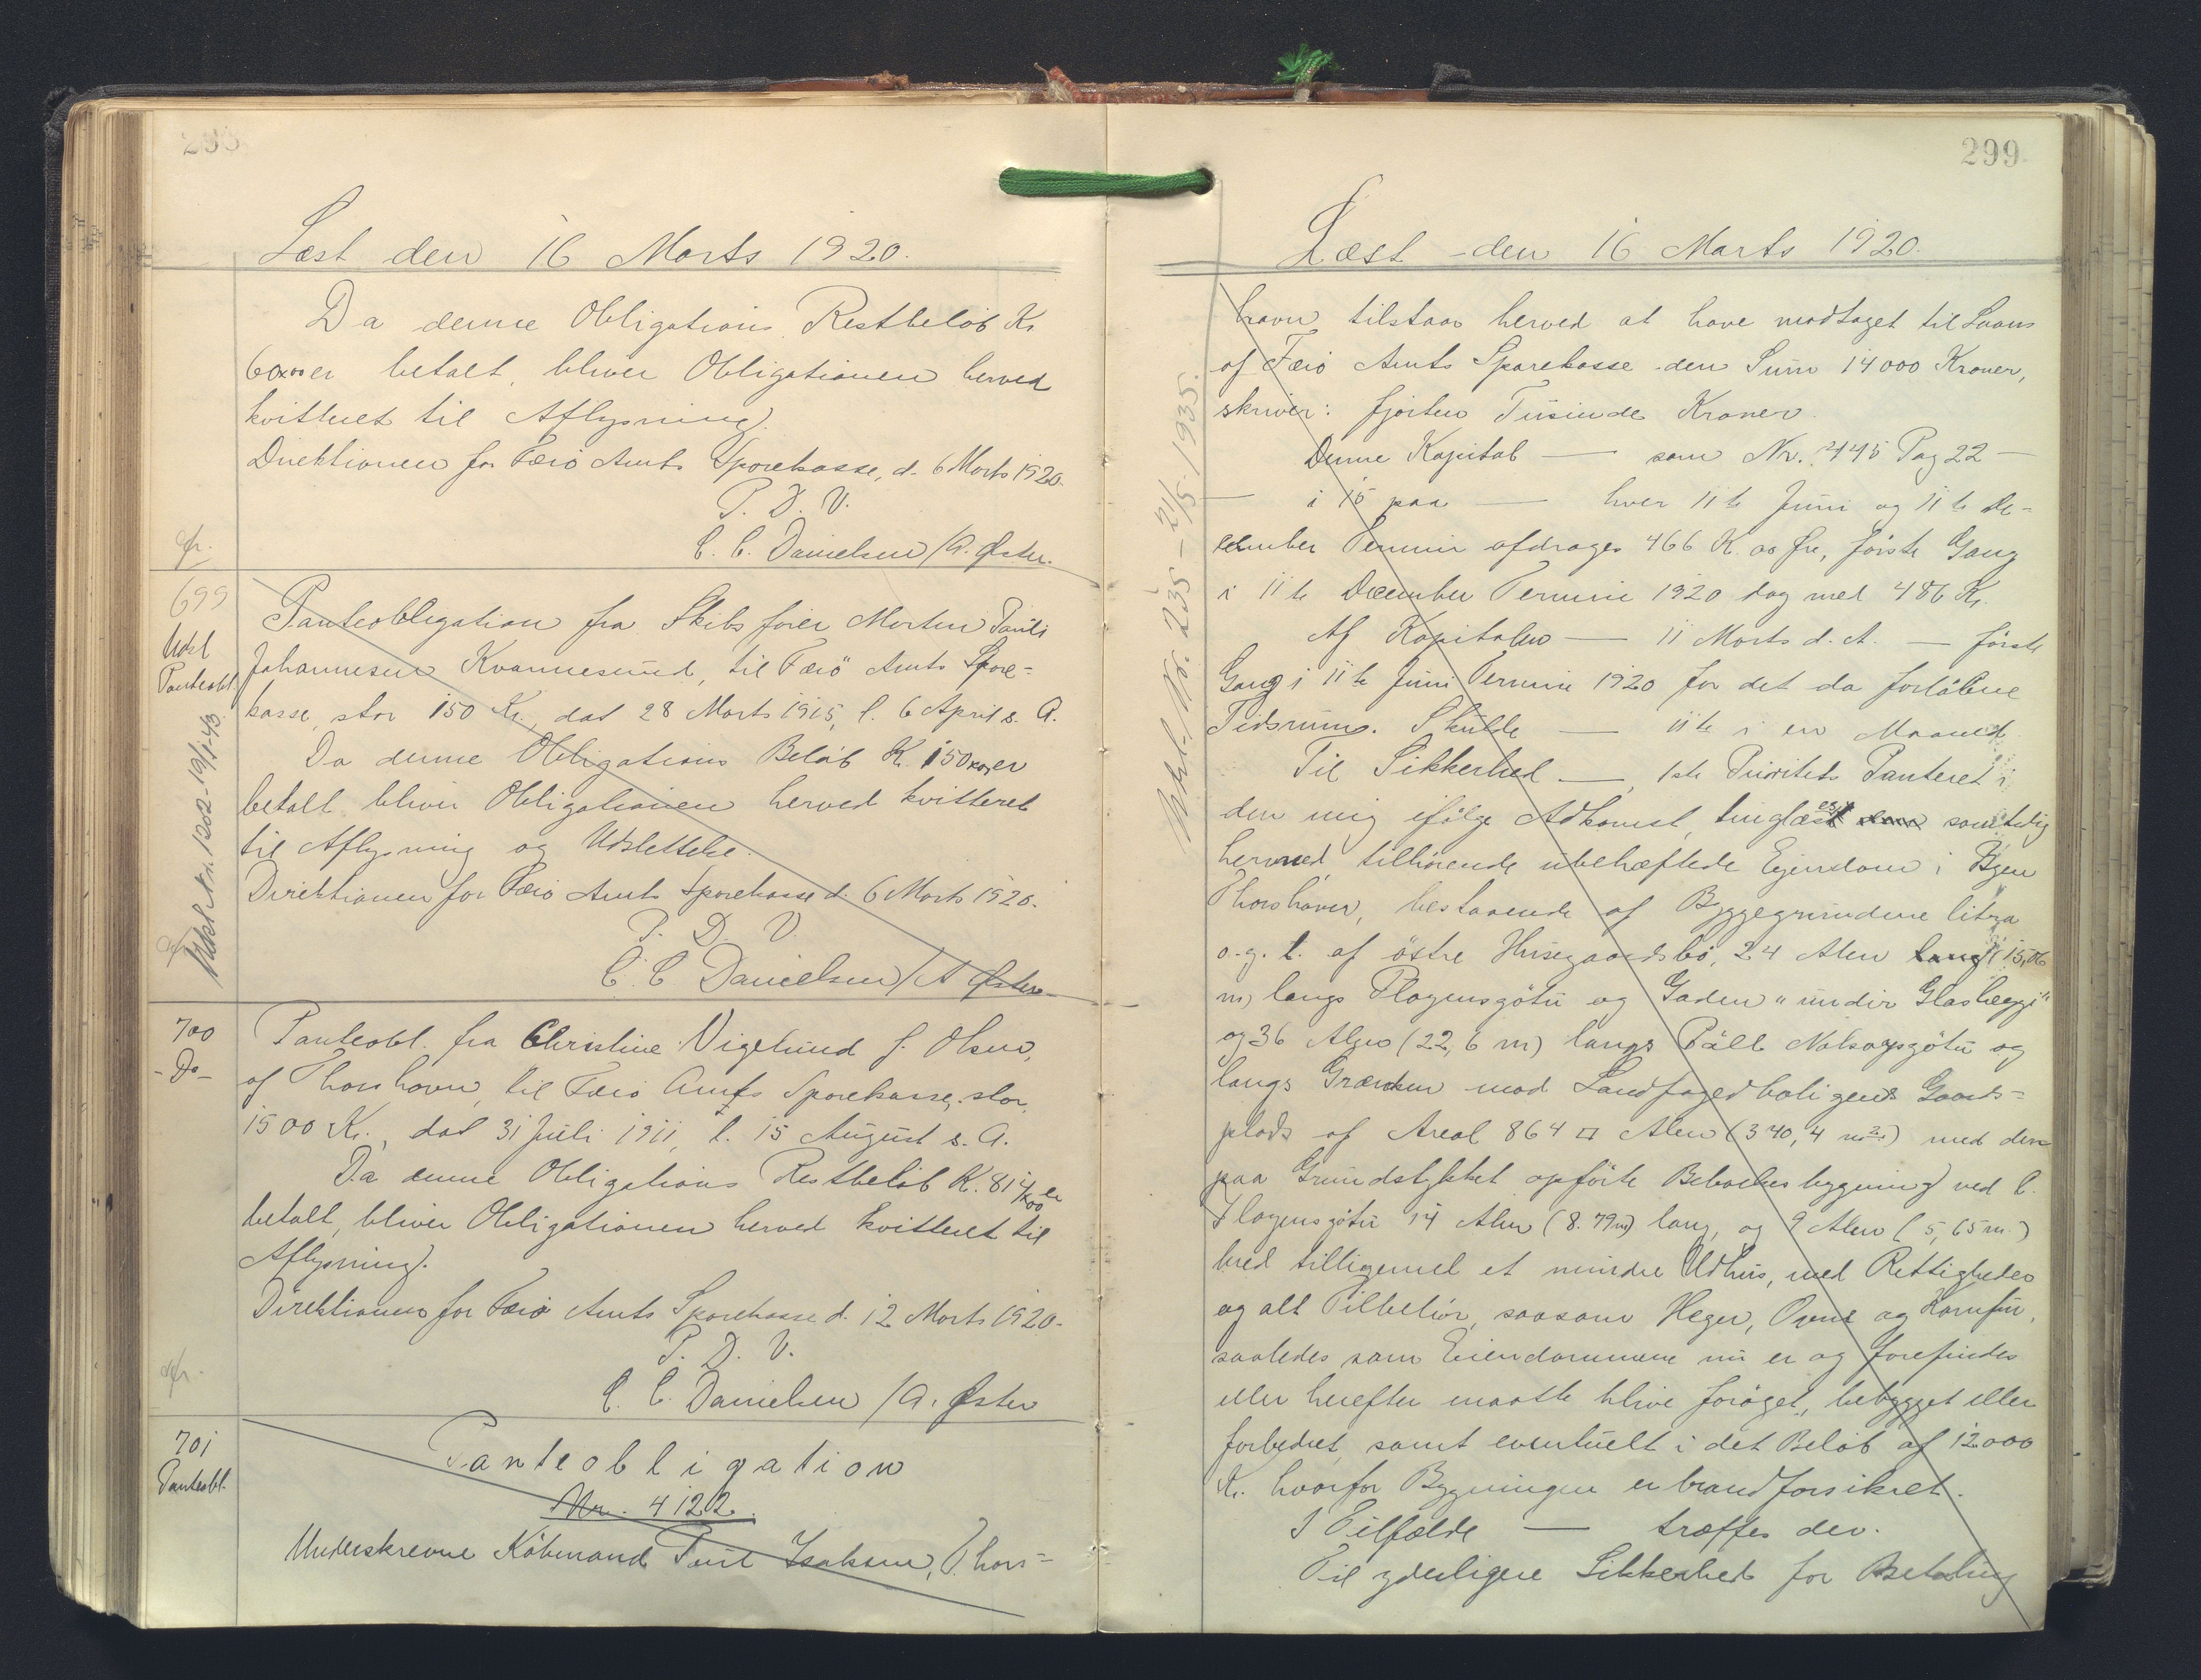 Læst den 16 Marts 1920.
Da denne Obligations Restbeløb Kr
60 00 er betalt, bliver Obligationen herved
kvitteret til Aflysning.
Direktionen for Færø Amts Sparekasse, d. 6 Marts 1920.
P. D. V.
C. C. Danielsen / A. Øster.
699
Udsl
Panteobl.
Udsl. Nr. 1202 - 19/1-43
Panteobligation fra Skibsfører Morten Pauli
Johannesen Kvannesund, til Færö Amts Spare=
kasse, stor 150 Kr., dat 28 Marts 1915, l. 6 April s. A.
Da denne Obligations Beløb Kr. 150 er
betalt bliver Obligationen herved kvitteret
til Aflysning og Udslettelse.
Direktionen for Færø Amts Sparekasse d. 6 Marts 1920.
P. D. V.
C. C. Danielsen / A Øster
700
- Do -
Panteobl. fra Christine Vigelund f. Olsen,
af Thorshavn, til Færø Amts Sparekasse, stor
1500 Kr., dat 31 Juli 1911, l. 15 August s. A.
Da denne Obligations Restbeløb Kr. 814/00 er
betalt, bliver Obligationen herved kvitteret til
Aflysning.
Direktionen for Færø Amts Sparekasse d. 12 Marts 1920.
P. D. V.
C. C. Danielsen / A. Øster
701
Panteobl.
Panteobligation
Nr. 4122.
Underskrevne Købmand Poul Isaksen, Thors=
299
Læst den 16 Marts 1920.
Udsl. Nr. 235 - 21/5 1935.
havn tilstaar herved at have modtaget til Laans
af Færø Amts Sparekasse den Sum 14000 Kroner,
skriver: fjorten Tusinde Kroner.
Denne Kapital — som Nr. 445 Pag 22 —
— i 15 paa — hver 11te Juni og 11te De=
cember Termin afdrages 466 K. 00 Øre, første Gang
i 11te December Termin 1920 dog med 486 Kr.
Af Kapitalen — 11 Marts d. A. — første
Gang i 11te Juni Termin 1920 for det da forløbne
Tidsrum. Skulde — 11te i en Maaned.
Til Sikkerhed —, 1ste Prioritets Panteret i
den mig ifølge Adkomst, tinglæst samtidig
hermed, tilhørende ubehæftede Ejendom i Byen
Thorshavn, bestaaende af Byggegrundene litra
o. g. t. af østre Husegaardsbø, 24 Alen lang (15,06
m) langs Plagensgøtu og Gaden "undir Glasheyggi"
og 36 Alen (22,6 m) langs Páll Nolsoysgøtu og
langs Grænsen mod Landfogedboligens Gaards=
plads af Areal 864 □ Alen (340,4 m²) med den
paa Grundstykket opførte Beboelsesbygning ved l.
Plagensgøtu 14 Alen (8.79m) lang, og 9 Alen (5,65 m.)
bred tilligemed et mindre Udhus, med Rettigheder
og alt Tilbehør, saasom Hegn, Ovne og Komfur,
saaledes som Eiendommene nu er og forefindes
eller herefter maatte blive forøget, bebygget eller
forbedret, samt eventuelt i det Beløb af 12000
Kr. hvorfor Bygningen er brandforsikret.
I Tilfælde — træffes der.
Til yderligere Sikkerhed for Betaling